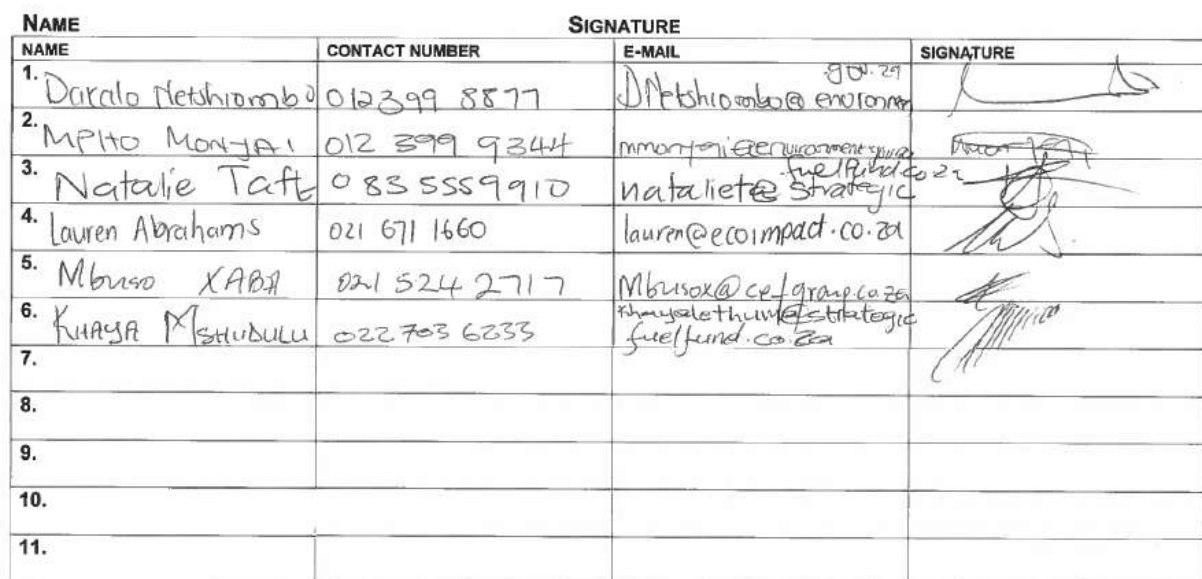 NAME SIGNATURE
NAME CONTACT NUMBER E-MAIL SIGNATURE
1. Netshiombo 012399 8877 DNetshiombo@environmen
gov.za
2. MPHO MONYAI 012 399 9344
3. Natalie Taft 083 5559910 nataliet@strategic
fuelfund.co.za
4. Lauren Abrahams 021 671 1660 lauren@ecoimpact.co.za
5. Mbuso XABA 021 524 2717 Mbusox@cefgroup.co.za
6. KHAYA MSHUDULU 022 703 6233 khayalethum@strategic
fuelfund.co.za
7.
8.
9.
10.
11.